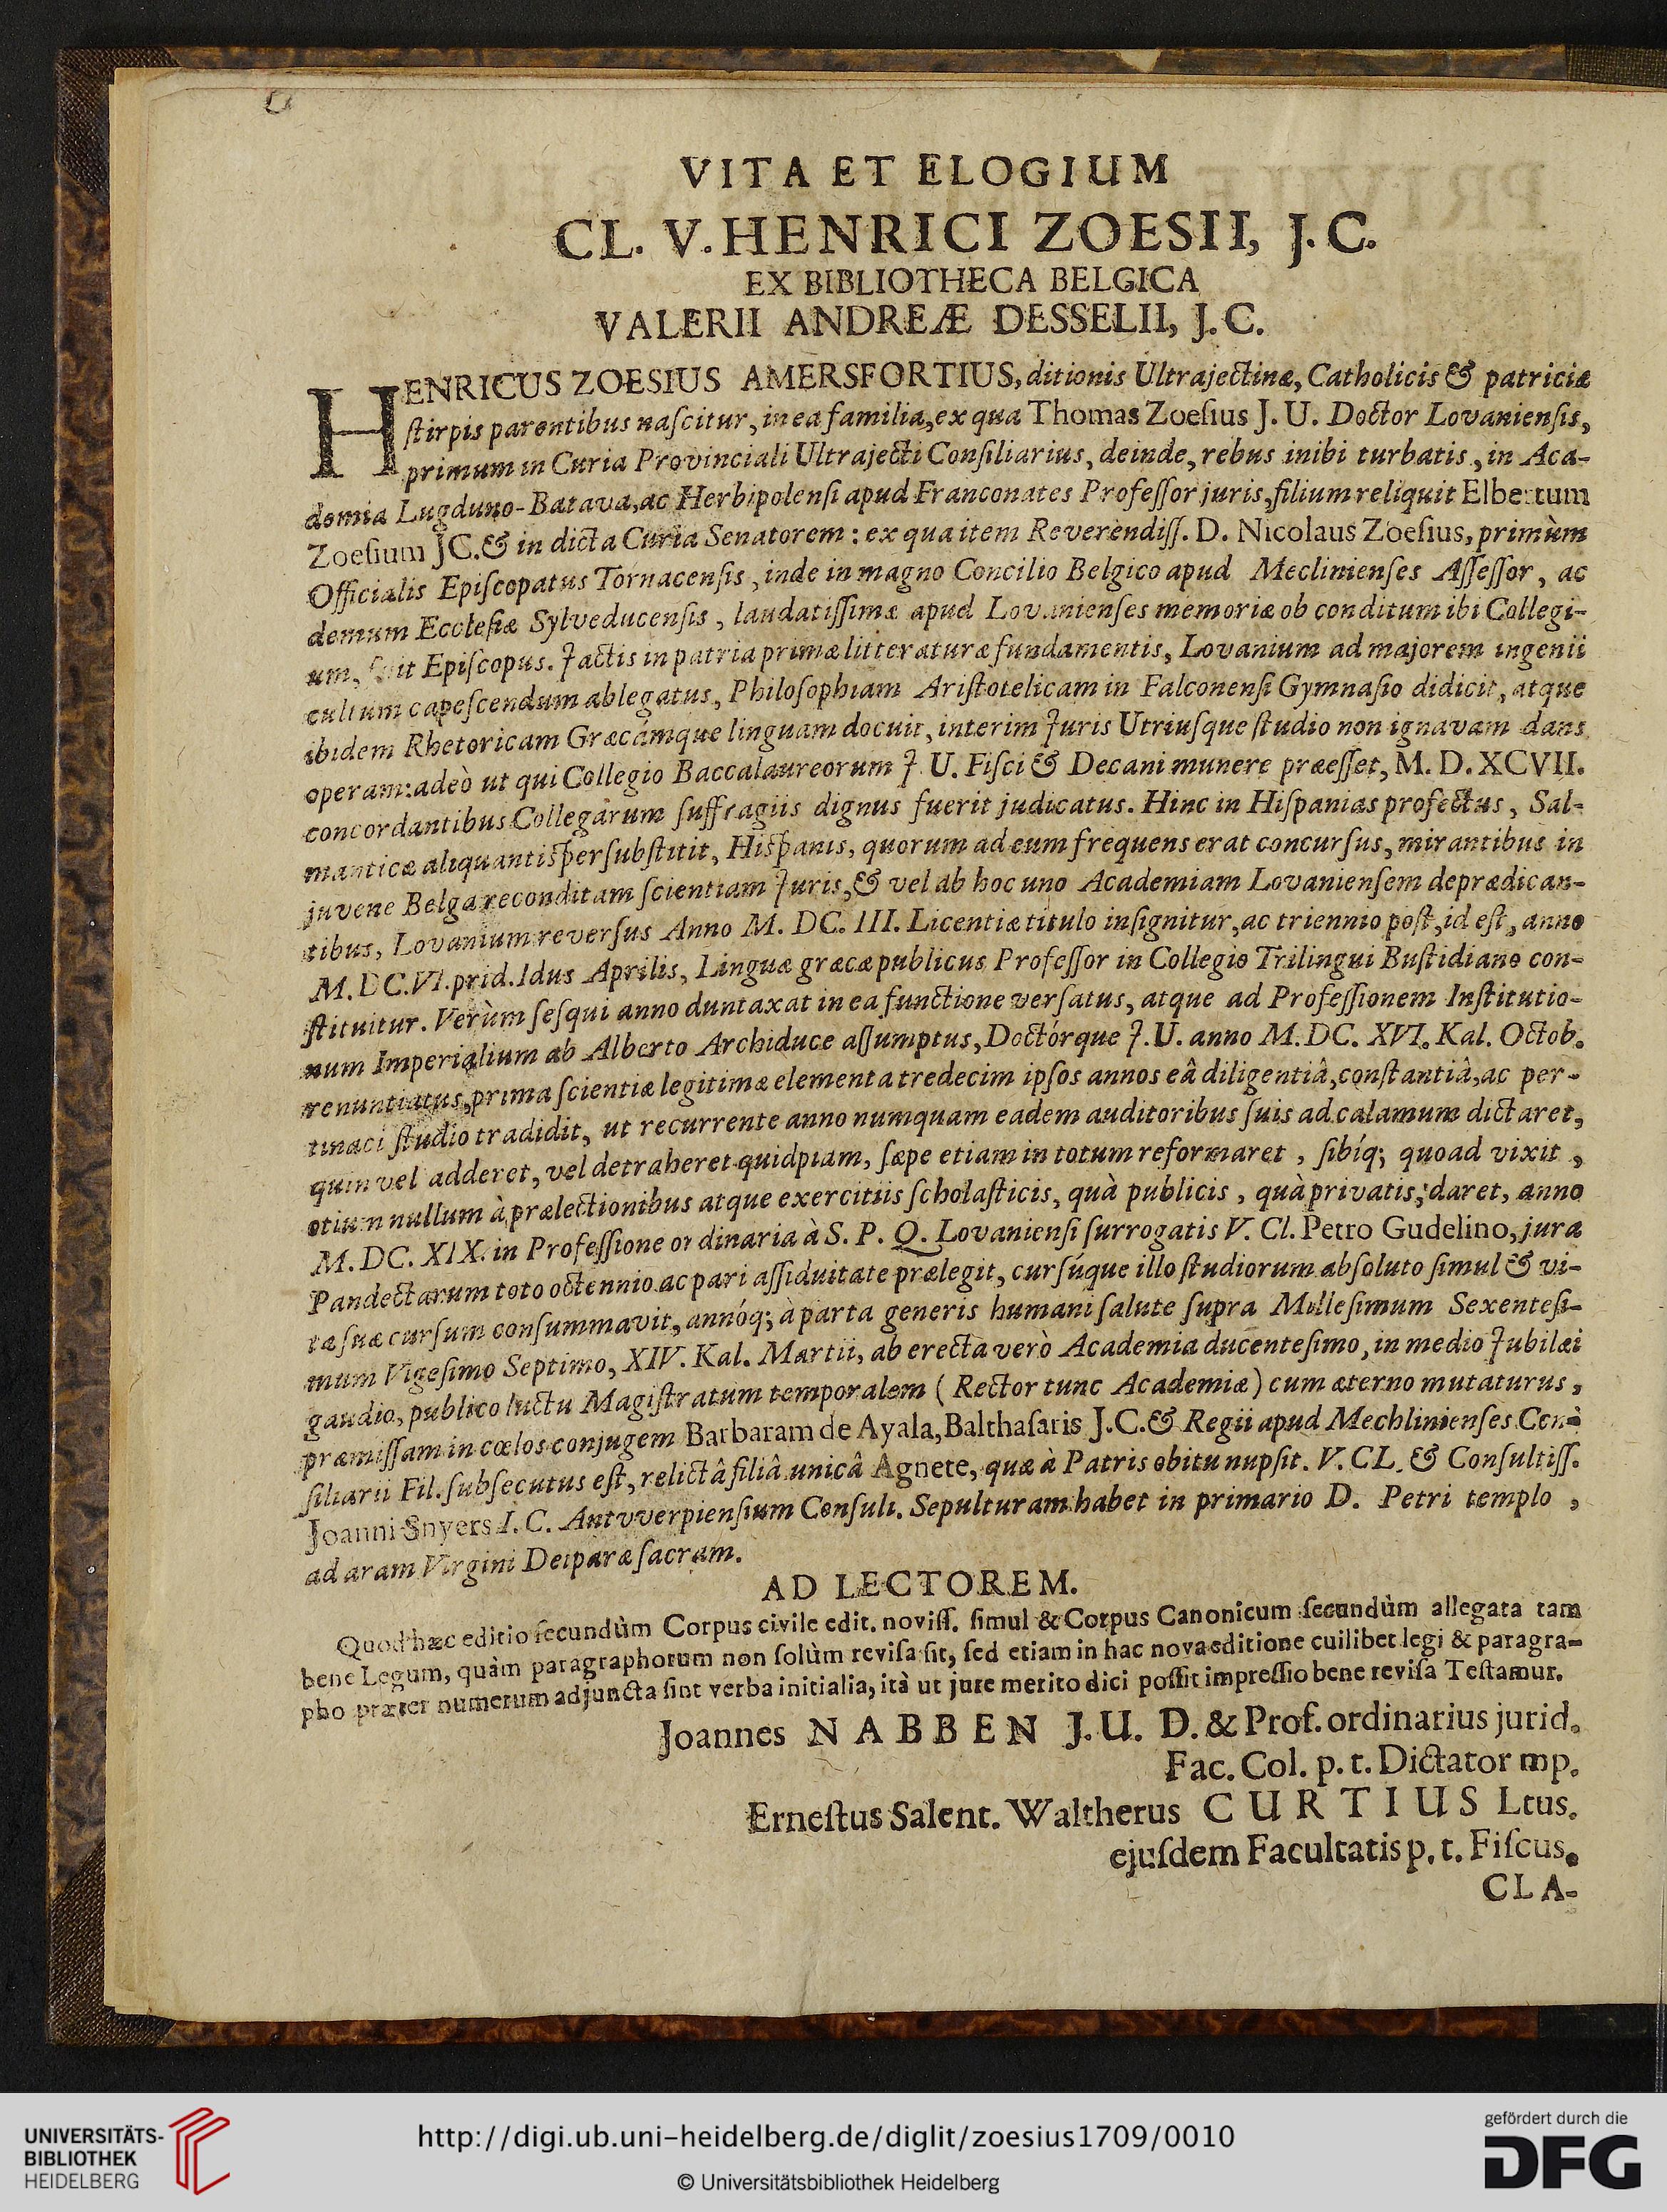 VITA ET ELOGIUM
CL. V. HENRICI ZOESII, J. C.
EX BIBLIOTHECA BELGICA
VALERII ANDREÆ DESSELII, J. C.
HENRICUS ZOESIUS AMERSFORTIUS, ditionis Ultrajectinæ, Catholicis & patriciæ
ſtirpis parentibus naſcitur, in ea familia, ex qua Thomas Zoeſius J. U. Doctor Lovanienſis,
primum in Curia Provinciali Ultrajecti Conſiliarius, deinde, rebus inibi turbatis, in Aca-
demia Lugduno-Batava, ac Herbipolenſi apud Franconates Profeſſor juris, filium reliquit Elbertum
Zoeſium JC. & in dicta Curia Senatorem: ex qua item Reverendiſſ. D. Nicolaus Zoeſius, primùm
Officialis Epiſcopatus Tornacenſis, inde in magno Concilio Belgico apud Meclinienſes Aſſeſſor, ac
demum Eccleſiæ Sylveducenſis, laudatiſſimæ apud Lovanienſes memoriæ ob conditum ibi Collegi-
um, fuit Epiſcopus. Jactis in patria primæ litteraturæ fundamentis, Lovanium ad majorem ingenii
cultum capeſcendum ablegatus, Philoſophiam Ariſtotelicam in Falconenſi Gymnaſio didicit, atque
ibidem Rhetoricam Græcámque linguam docuit, interim Juris Utriuſque ſtudio non ignavam dans
operam: adeò ut qui Collegio Baccalaureorum J. U. Fiſci & Decani munere præeſſet, M. D. XCVII.
concordantibus Collegarum ſuffragiis dignus fuerit judicatus. Hinc in Hiſpanias profectus, Sal-
manticæ aliquantiſper ſubſtitit, Hiſpanis, quorum ad eum frequens erat concurſus, mirantibus in
juvene Belga reconditam ſcientiam Juris, & vel ab hoc uno Academiam Lovanienſem deprædican-
tibus, Lovanium reverſus Anno M. DC. III. Licentiæ titulo inſignitur, ac triennio poſt, id eſt, anno
M. DC. VI. prid. Idus Aprilis, Linguæ græcæ publicus Profeſſor in Collegio Trilingui Buſtidiano con-
ſtituitur. Verùm ſeſqui anno duntaxat in ea functione verſatus, atque ad Profeſſionem Inſtitutio-
num Imperialium ab Alberto Archiduce aſſumptus, Doctórque J. U. anno M. DC. XVI. Kal. Octob.
renuntiatus, prima ſcientiæ legitimæ elementa tredecim ipſos annos eâ diligentiâ, conſtantiâ, ac per-
tinaci ſtudio tradidit, ut recurrente anno numquam eadem auditoribus ſuis ad calamum dictaret,
quin vel adderet, vel detraheret quidpiam, ſæpe etiam in totum reformaret, ſibíq; quoad vixit,
otium nullum à prælectionibus atque exercitiis ſcholaſticis, quà publicis, quà privatis, daret, anno
M. DC. XIX. in Profeſſione ordinaria à S. P. Q. Lovanienſi ſurrogatis V. Cl. Petro Gudelino, jura
Pandectarum toto octennio ac pari aſſiduitate prælegit, curſúque illo ſtudiorum abſoluto ſimul & vi-
tæ ſuæ curſum conſummavit, annóq; à parta generis humani ſalute ſupra Milleſimum Sexenteſi-
mum Vigeſimo Septimo, XIV. Kal. Martii, ab erecta verò Academia ducenteſimo, in medio Jubilæi
gaudio, publico luctu Magiſtratum temporalem (Rector tunc Academiæ) cum æterno mutaturus,
præmiſſam in cœlos conjugem Barbaram de Ayala, Balthaſaris J. C. & Regii apud Mechlinienſes Con-
ſiliarii Fil. ſubſecutus eſt, relictâ filiâ unicâ Agnete, quæ à Patris obitu nupſit. V. CL. & Conſultiſſ.
Joanni Snyers I. C. Antvverpienſium Conſuli. Sepulturam habet in primario D. Petri templo,
ad aram Virgini Deiparæ ſacram.
AD LECTOREM.
Quod hæc editio ſecundùm Corpus civile edit. noviſſ. ſimul & Corpus Canonicum ſecundùm allegata tam
bene Legum, quàm paragraphorum non ſolùm reviſa ſit, ſed etiam in hac nova editione cuilibet legi & paragra-
pho præter numerum adjuncta ſint verba initialia, ità ut jure merito dici poſſit impreſſio bene reviſa Teſtamur.
Joannes NABBEN J. U. D. & Prof. ordinarius jurid.
Fac. Col. p. t. Dictator mp.
Erneſtus Salent. Waltherus CURTIUS Ltus.
ejuſdem Facultatis p. t. Fiſcus.
CLA-
UNIVERSITÄTS-
BIBLIOTHEK
HEIDELBERG
http://digi.ub.uni-heidelberg.de/diglit/zoesius1709/0010
© Universitätsbibliothek Heidelberg
gefördert durch die
DFG